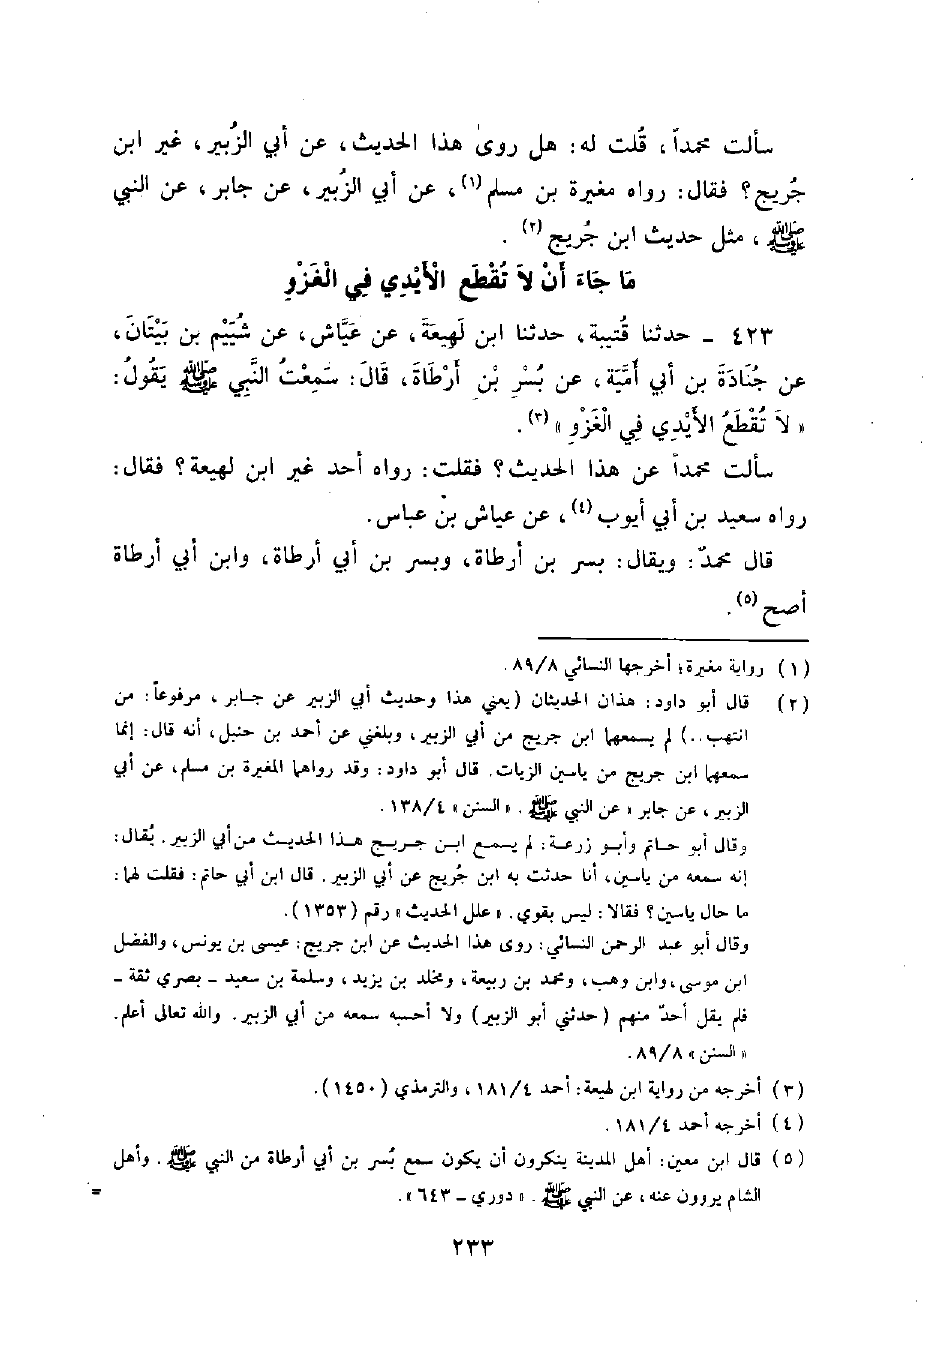 سألت محمداً، قُلت له: هل روىٰ هذا الحديث، عن أبي الزُبير، غير ابن
جُريج؟ فقال: رواه مغيرة بن مسلم(١)، عن أبي الزُبير، عن جابر، عن النبي
ﷺ، مثل حديث ابن جُريج(٢).
مَا جَاءَ أَنْ لاَ تُقْطَع الْأَيْدِي فِي الْغَزْوِ
٤٢٣ - حدثنا قُتيبة، حدثنا ابن لَهِيعَةَ، عن عَيَّاش، عن شُيَيْم بن بَيْتَانَ،
عن جُنَادَةَ بن أبي أُمَيَّة، عن بُسْرِ بْنِ أَرْطَاةَ، قَالَ: سَمِعْتُ النَّبي ﷺ يَقُولُ:
« لاَ تُقْطَعُ الأَيْدِي فِي الْغَزْوِ »(٣).
سألت محمداً عن هذا الحديث؟ فقلت: رواه أحد غير ابن لهيعة؟ فقال:
رواه سعيد بن أبي أيوب(٤)، عن عياش بن عباس.
قال محمدٌ: ويقال: بسر بن أرطاة، وبسر بن أبي أرطاة، وابن أبي أرطاة
أصح(٥).
(١) رواية مغيرة؛ أخرجها النسائي ٨٩/٨.
(٢) قال أبو داود: هذان الحديثان (يعني هذا وحديث أبي الزبير عن جابر، مرفوعاً: من
انتهب..) لم يسمعها ابن جريج من أبي الزبير، وبلغني عن أحمد بن حنبل، أنه قال: إنما
سمعها ابن جريج من ياسين الزيات. قال أبو داود: وقد رواهما المغيرة بن مسلم، عن أبي
الزبير، عن جابر « عن النبي ﷺ. « السنن » ١٣٨/٤.
وقال أبو حاتم وأبو زرعة: لم يسمع ابن جريج هذا الحديث من أبي الزبير. يُقال:
إنه سمعه من ياسين، أنا حدثت به ابن جُريج عن أبي الزبير. قال ابن أبي حاتم: فقلت لهما:
ما حال ياسين؟ فقالا: ليس بقوي. « علل الحديث » رقم (١٣٥٣).
وقال أبو عبد الرحمن النسائي: روى هذا الحديث عن ابن جريج: عيسى بن يونس، والفضل
ابن موسى، وابن وهب، ومحمد بن ربيعة، ومخلد بن يزيد، وسلمة بن سعيد - بصري ثقة -
فلم يقل أحدٌ منهم (حدثني أبو الزبير) ولا أحسبه سمعه من أبي الزبير. والله تعالى أعلم.
« السنن » ٨٩/٨.
(٣) أخرجه من رواية ابن لهيعة: أحمد ١٨١/٤، والترمذي (١٤٥٠).
(٤) أخرجه أحمد ١٨١/٤.
(٥) قال ابن معين: أهل المدينة ينكرون أن يكون سمع بُسر بن أبي أرطاة من النبي ﷺ. وأهل
الشام يروون عنه، عن النبي ﷺ. « دوري - ٦٤٣ ». =
٢٣٣